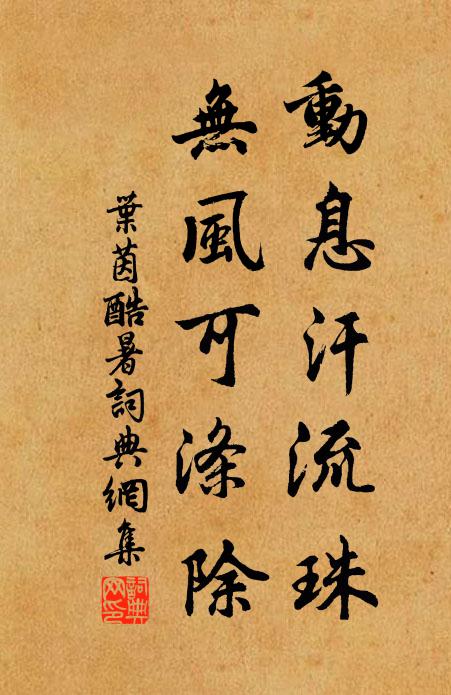 動息汗流珠
無風可滌除
葉茵酷暑詞典網集
詞典網印